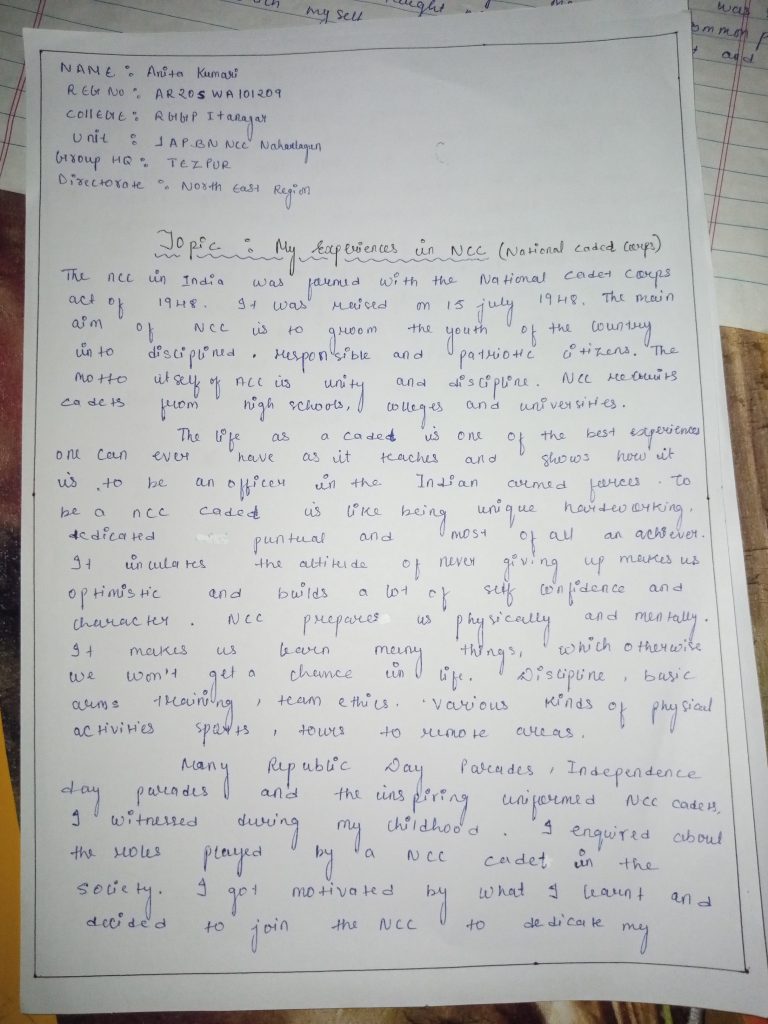 my self
was
common p
and
NAME : Anita Kumari
REG NO : AR20SWA101209
COLLEGE : RGGP Itanagar
Unit : 1 AP BN NCC Naharlagun
Group HQ : TEZPUR
Directorate : North East Region
Topic : My Experiences in NCC (National Caded Corps)
The ncc in India was formed with the National Cadet Corps
act of 1948. It was raised on 15 july 1948. The main
aim of NCC is to groom the youth of the country
into disciplined. responsible and patriotic citizens. The
motto itself of ncc is unity and discipline. NCC recruits
cadets from high schools, colleges and universities.
The life as a caded is one of the best experiences
one can ever have as it teaches and shows how it
is to be an officer in the Indian armed forces. To
be a ncc caded is like being unique hardworking,
dedicated puntual and most of all an achiever.
It inculates the attitude of never giving up makes us
optimistic and builds a lot of self confidence and
character. NCC prepares us physically and mentally.
It makes us learn many things, which otherwise
we won't get a chance in life. Discipline, basic
arms training, team ethics. various kinds of physical
activities sports, tours to remote areas.
Many Republic Day Parades, Independence
day parades and the inspiring uniformed NCC cadets,
I witnessed during my childhood. I enquired about
the roles played by a NCC cadet in the
society. I got motivated by what I learnt and
decided to join the NCC to dedicate my